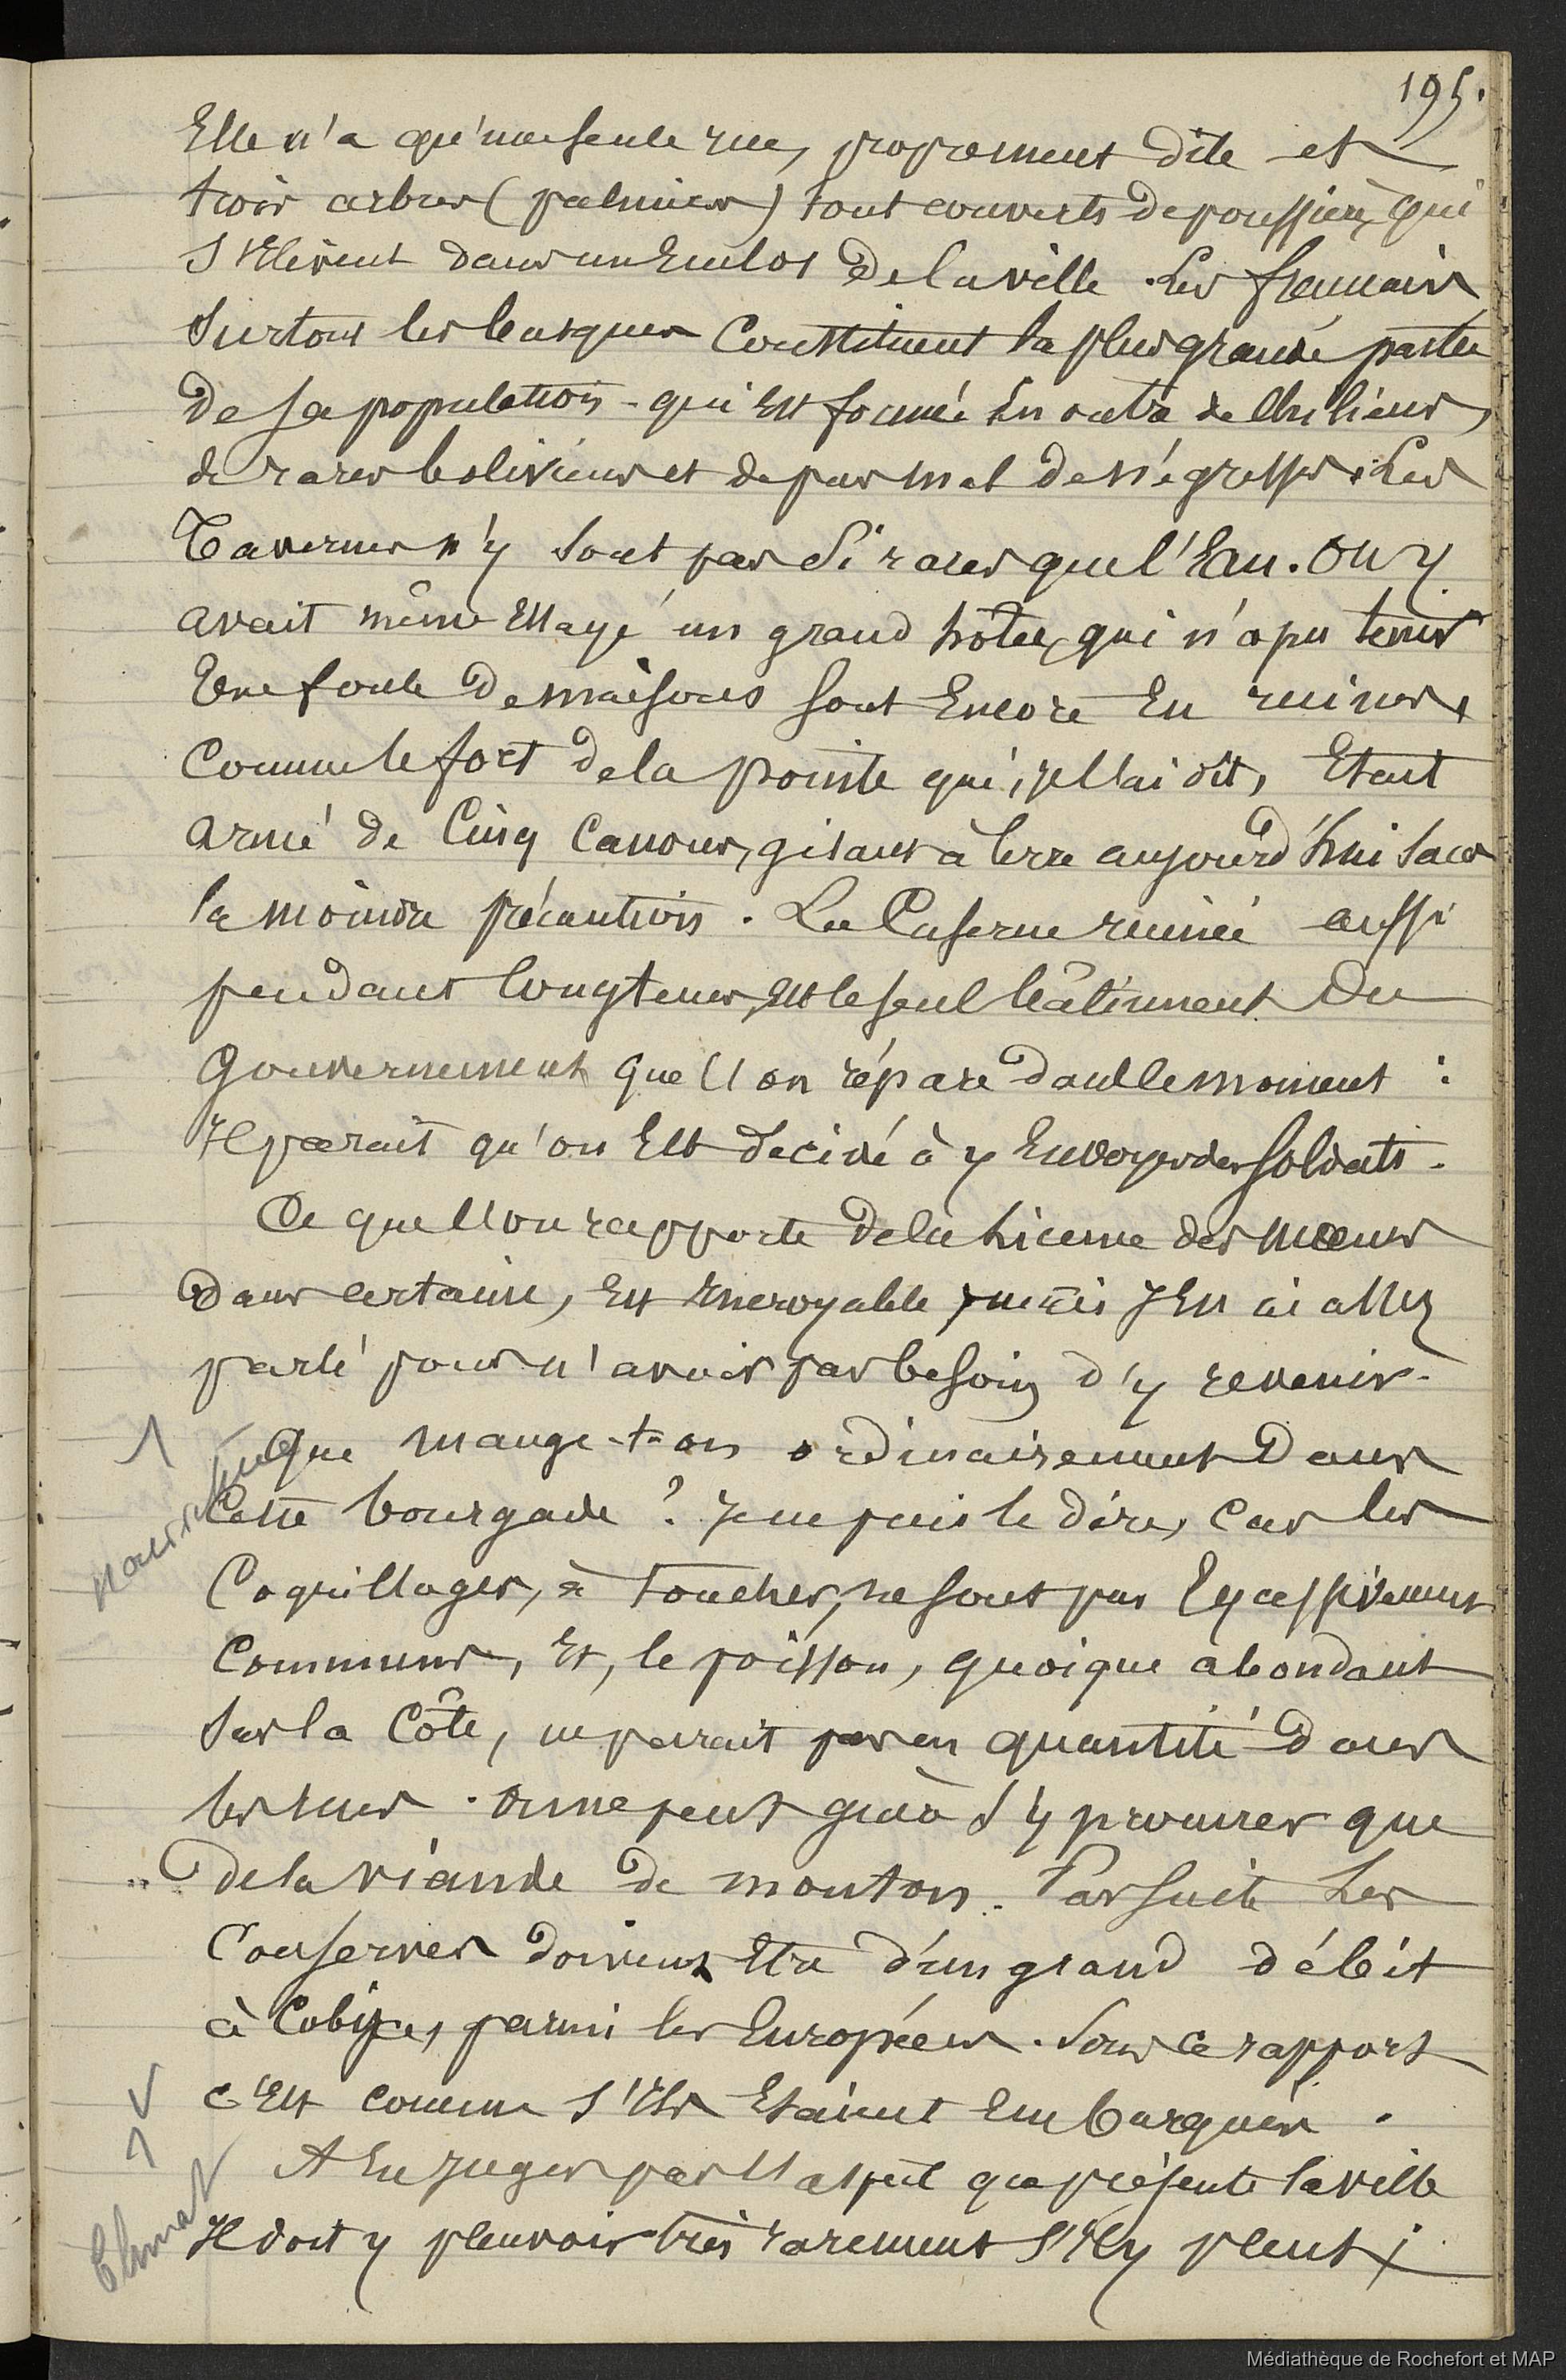 195.
Elle n'a qu'une seule rue, proprement dite et
trois arbres (palmiers) tout couverts de poussière, qui
s'élèvent dans un enclos de la ville. Les français
surtout les basques constituent la plus grande partie
de sa population - qui est formée en outre de chiliens,
de rares boliviens et de pas mal de négresses. Les
Tavernes n'y sont pas si rares que l'Eau. On y
avait même essayé un grand hôtel, qui n'a pu tenir
Une foule de maisons sont encore en ruines,
comme le fort de la pointe qui, je l'ai dit, Etait
armé de cinq canons, gisant à terre aujourd'hui sans
la moindre précaution. La Caserne ruinée aussi
pendant longtems, est le seul bâtiment du
gouvernement que l'on répare dans le moment :
Il parait qu'on est décidé à y envoyer des soldats.
Ce que l'on rapporte de la licence des mœurs
dans certaine, est incroyable, mais j'en ai assez
parlé pour n'avoir pas besoin d'y revenir.
Que mange-t-on ordinairement dans
Cette bourgade ? Je ne puis le dire, car les
Coquillages, à toucher, ne sont pas excessivement
communs, et, le poisson, quoique abondant
sur la côte, ne parait pas en quantité dans
les rues. On ne peut guère s'y procurer que
de la viande de mouton. Par suite les
Conserves doivent être d'un grand débit
à Cobija, parmi les Européens. Sous ce rapport
c'est comme s'ils étaient embarqués.
A en juger par l'aspect que présente la ville
Il doit y pleuvoir très rarement s'il y pleut ;
nourriture
Climat
Médiathèque de Rochefort et MAP